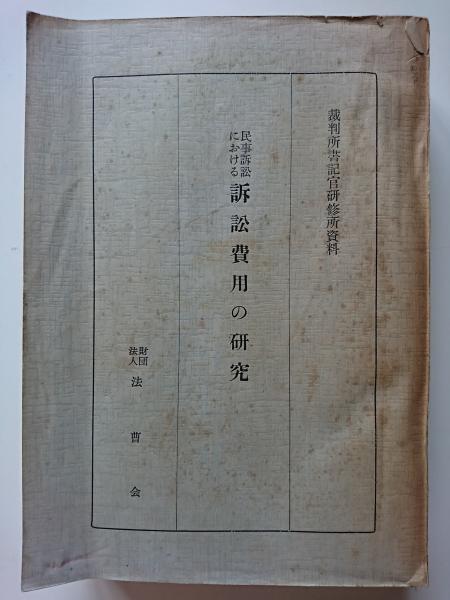 裁判所書記官研修所資料
民事訴訟
における
訴訟費用の研究
財団
法人
法曹会